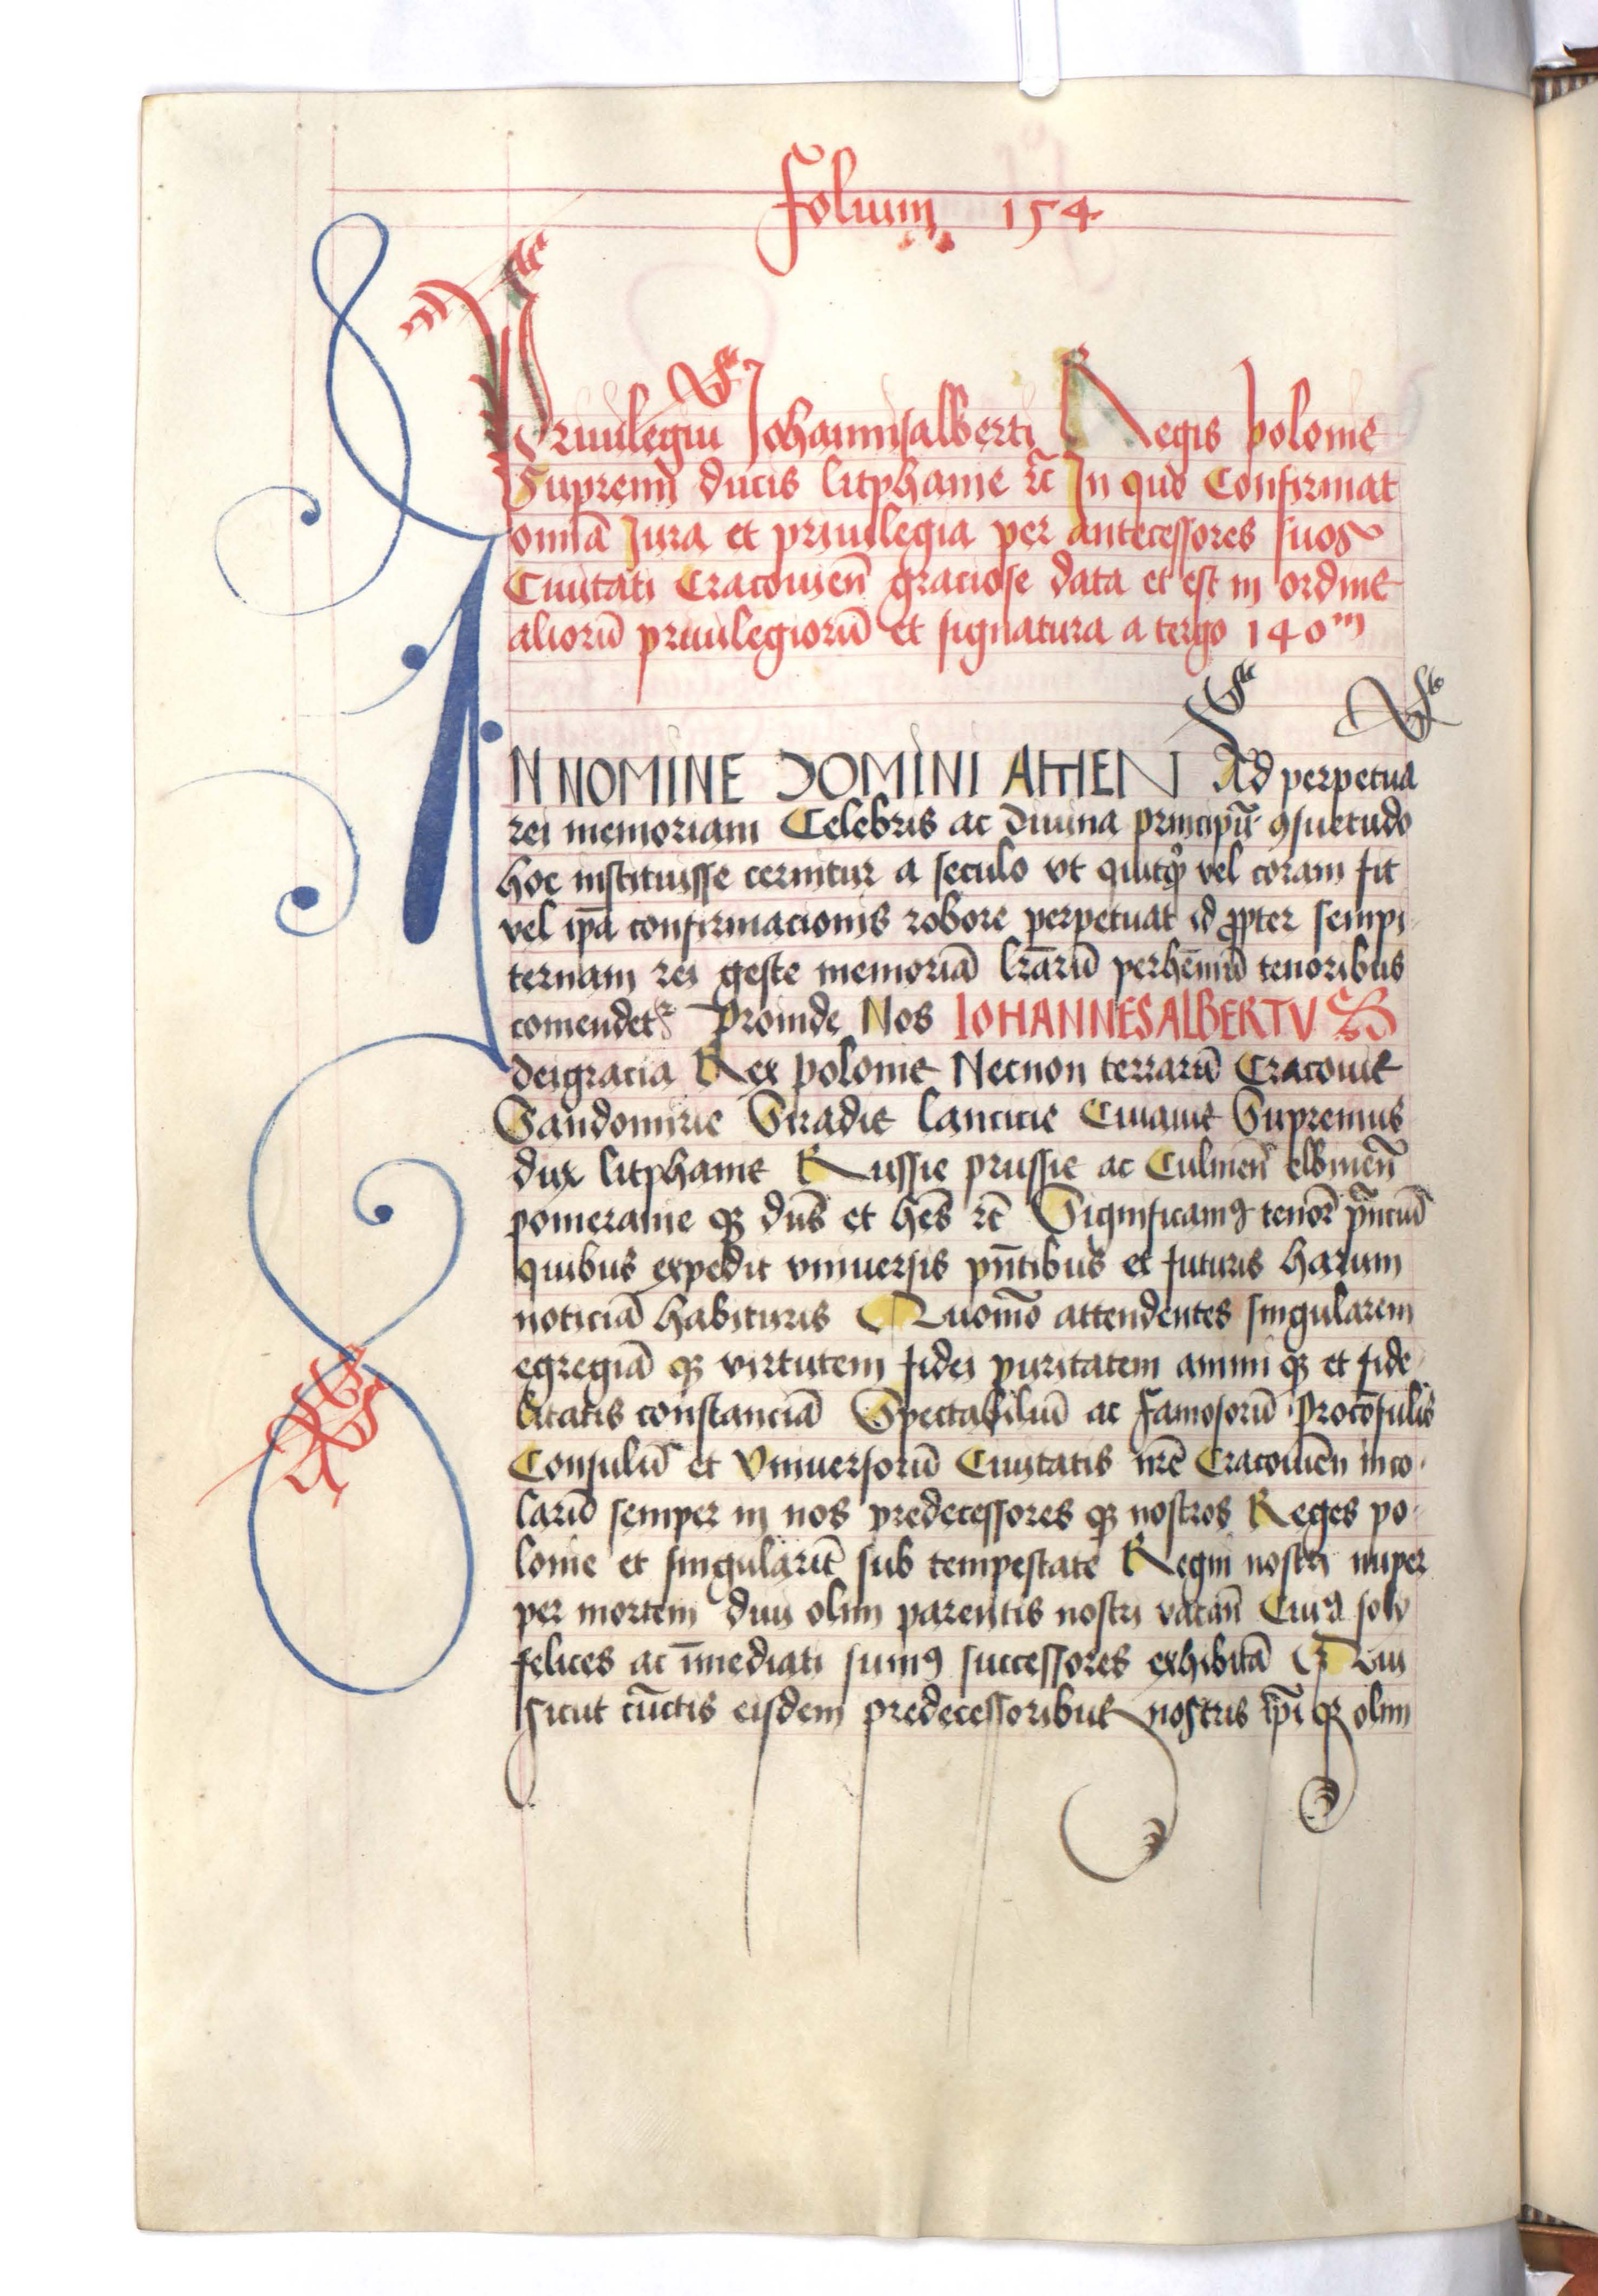 Folium 154
Priuilegiu Johannisalberti Regis polonie
Supremi ducis litphanie rc̄ In quo Confirmat
omīa Jura et priuilegia per antecessores suos
Ciuitati Cracouien̄ graciose data et est in ordine
aliorū priuilegiorū et signatura a tergo 140m
IN NOMINE DOMINI AMEN Ad perpetua
rei memoriam Celebris ac diuina principū ꝯsuetudo
hoc instituisse cernitur a seculo vt quitqͦ vel coram fit
vel ip̄a confirmacionis robore perpetuat id ꝓpter sempi
ternam rei geste memoriā lr̄arū perhēniū tenoribus
comendet᷑ Proinde Nos IOHANNESALBERTVS
deigracia Rex polonie Necnon terrarū Cracouie
Sandomirie Siradie lancicie Cuiauie Supremus
dux litphanie Russie prussie ac Culmen̄ elbinen̄
pomeranie qꝫ dn̄s et hēs rc̄ Significamꝰ tenor̄ pn̄ciū
quibus expedit vniuersis pn̄tibus et futuris harum
noticiā habituris Quomō attendentes singularem
egregiā qꝫ virtutem fidei puritatem animi qꝫ et fide
litatis constanciā Spectabiliū ac famosorū Procōsulis
Consulū et Vniuersorū Ciuitatis nr̄e Cracouien̄ inco
larū semper in nos predecessores qꝫ nostros Reges po
lonie et singularit̄ sub tempestate Regni nostri nuper
per mortem diui olim parentis nostri vacan̄ Cuiꝰ soly
felices ac īmediati sumꝰ successores exhibitā Qui
sicut cūctis eisdem predecessoribus nostris ip̄i qꝫ olim